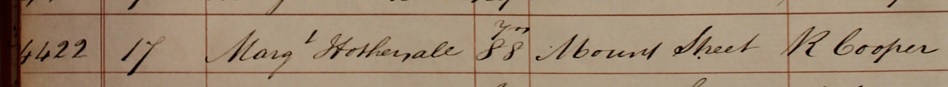 4422 17 Margt Hothersale 88 yrs Mount Street R Cooper